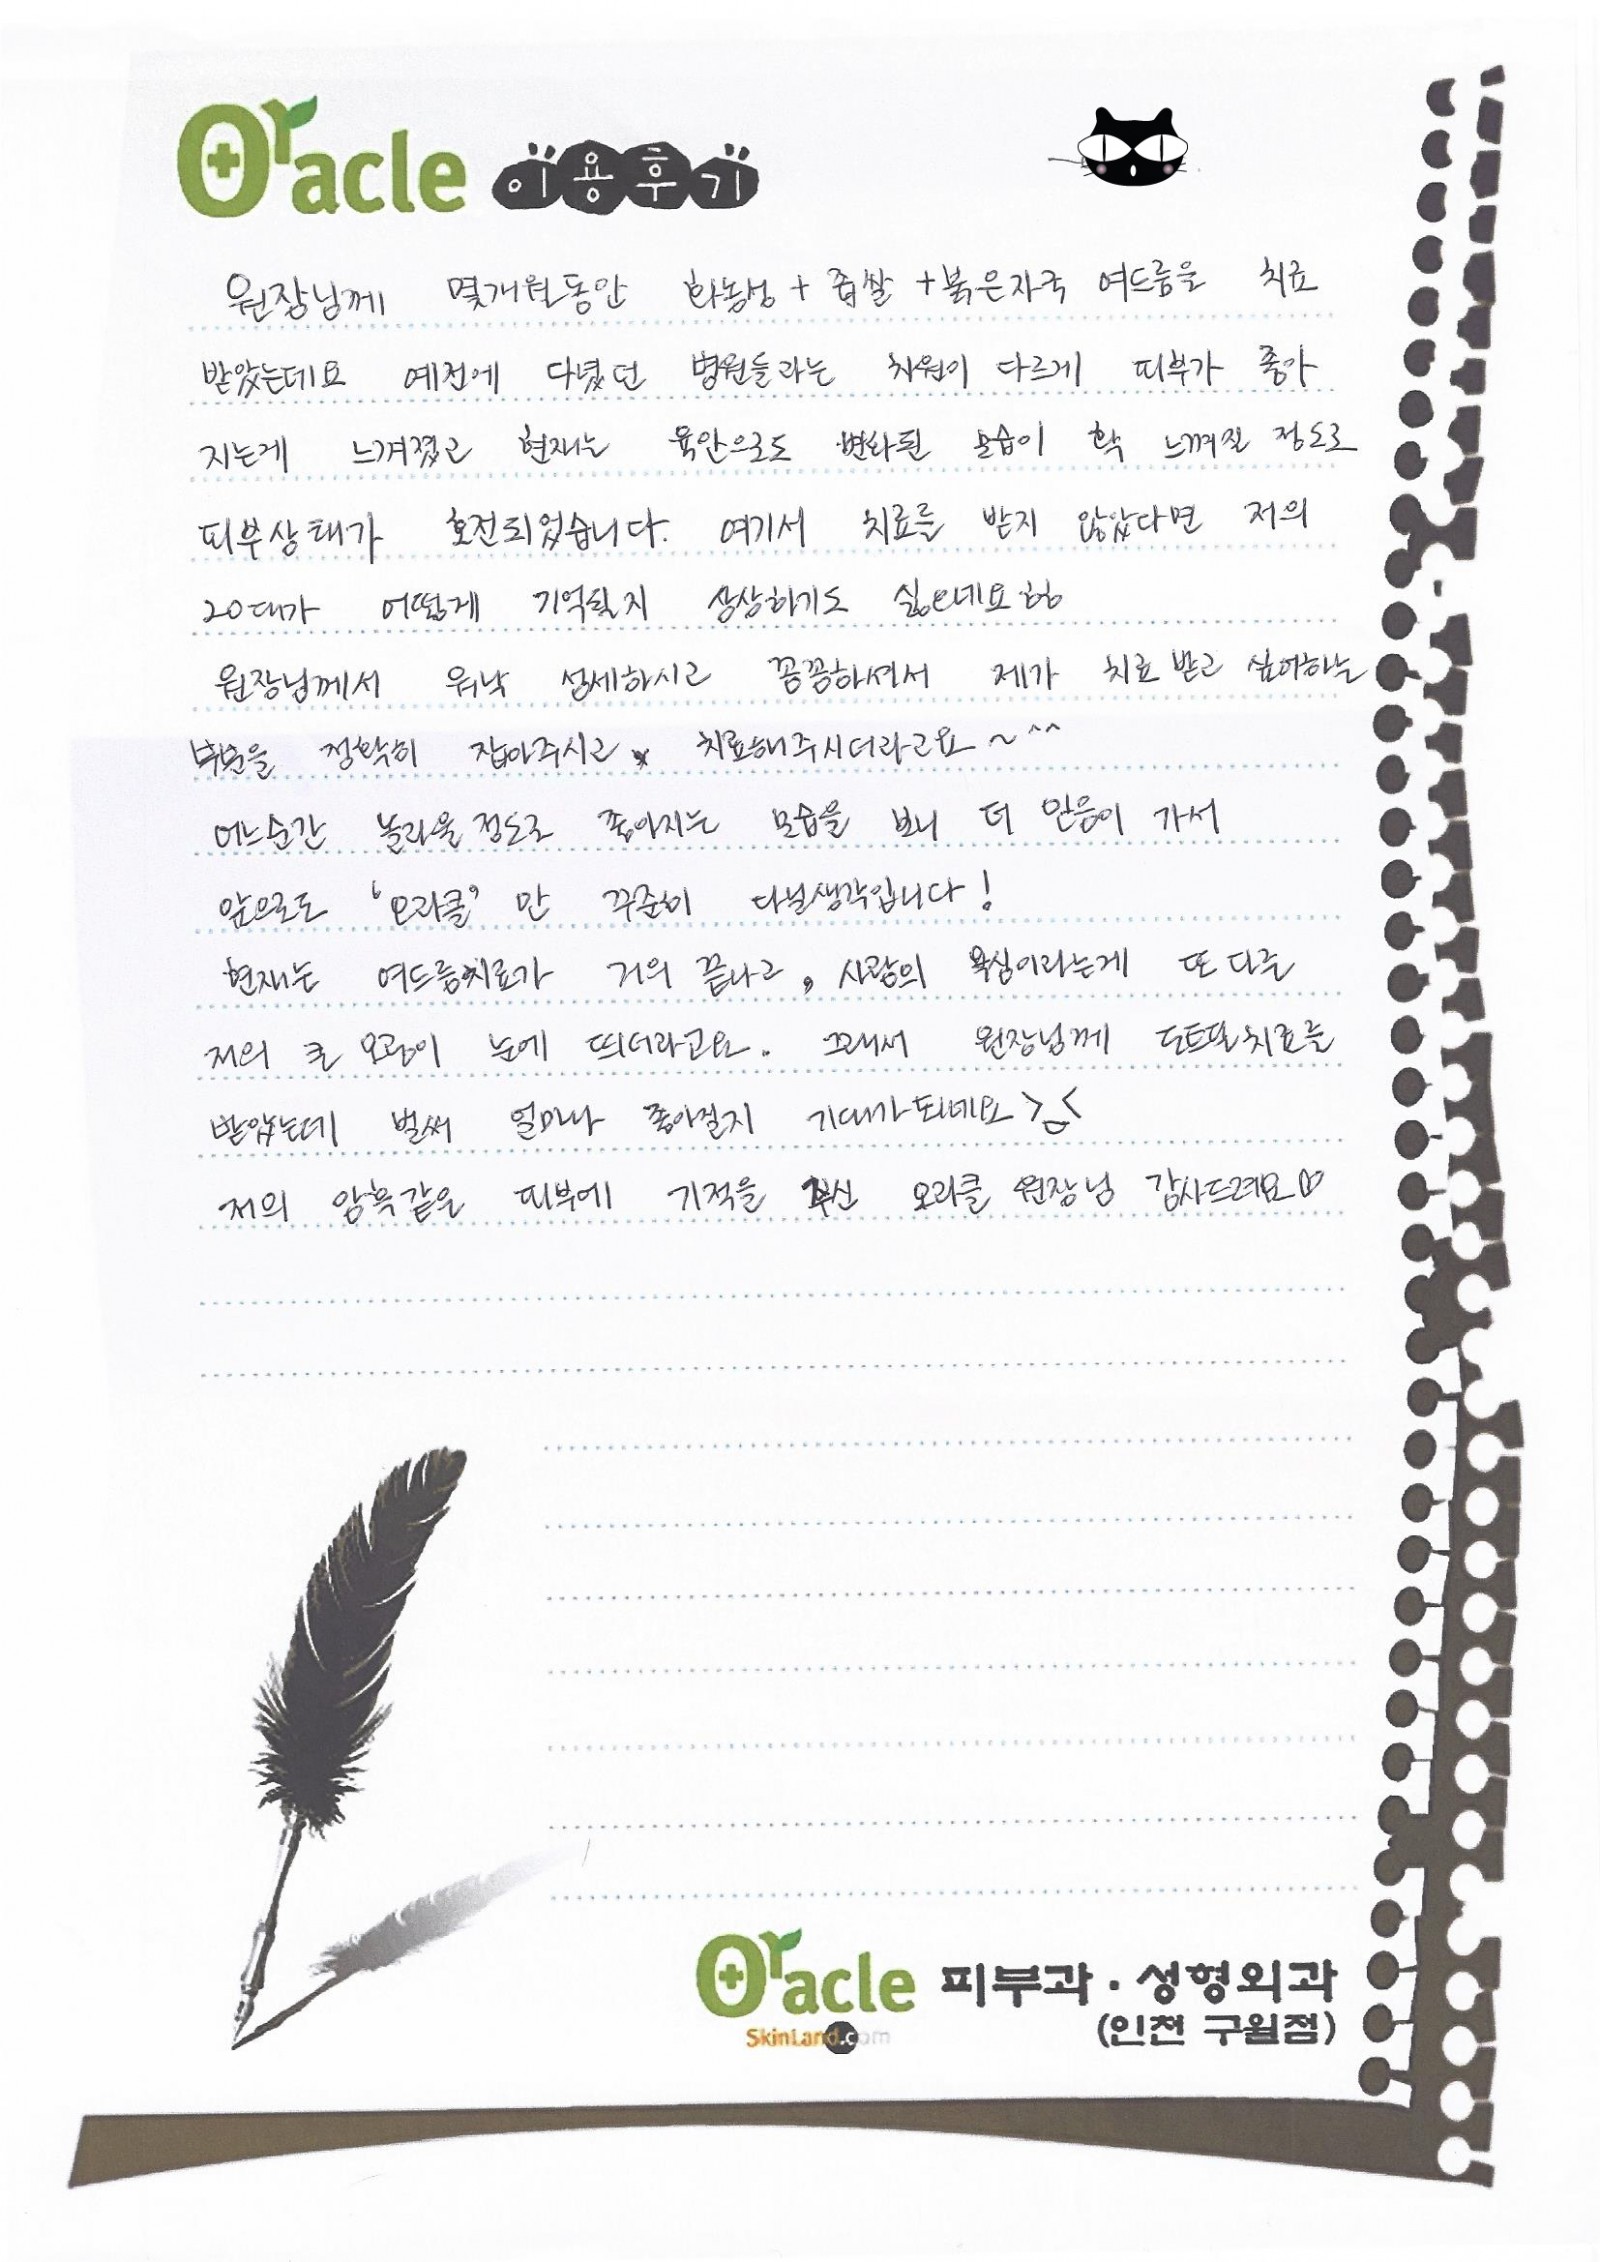 Oracle 이용후기
원장님께 몇개월동안 화농성 + 좁쌀 + 붉은자국 여드름을 치료
받았는데요 예전에 다녔던 병원들과는 차원이 다르게 피부가 좋아
지는게 느껴졌고 현재는 육안으로도 변화된 모습이 확 느껴질 정도로
피부상태가 호전되었습니다. 여기서 치료를 받지 않았다면 저의
20대가 어떻게 기억될지 상상하기도 싫으네요 ㅎㅎ
원장님께서 워낙 섬세하시고 꼼꼼하셔서 제가 치료 받고 싶어하는
부분을 정확히 잡아주시고 치료해주시더라고요~^^
어느순간 놀라울정도로 좋아지는 모습을 보니 더 믿음이 가서
앞으로도 '오라클' 만 꾸준히 다닐생각입니다!
현재는 여드름치료가 거의 끝나고, 사람의 욕심이라는게 또 다른
저의 큰 모공이 눈에 띄더라고요. 그래서 원장님께 도트필치료를
받았는데 벌써 얼마나 좋아질지 기대가되네요 >_<
저의 암흑같은 피부에 기적을 주신 오라클 원장님 감사드려요♡
Oracle 피부과 · 성형외과
SkinLand.com (인천 구월점)